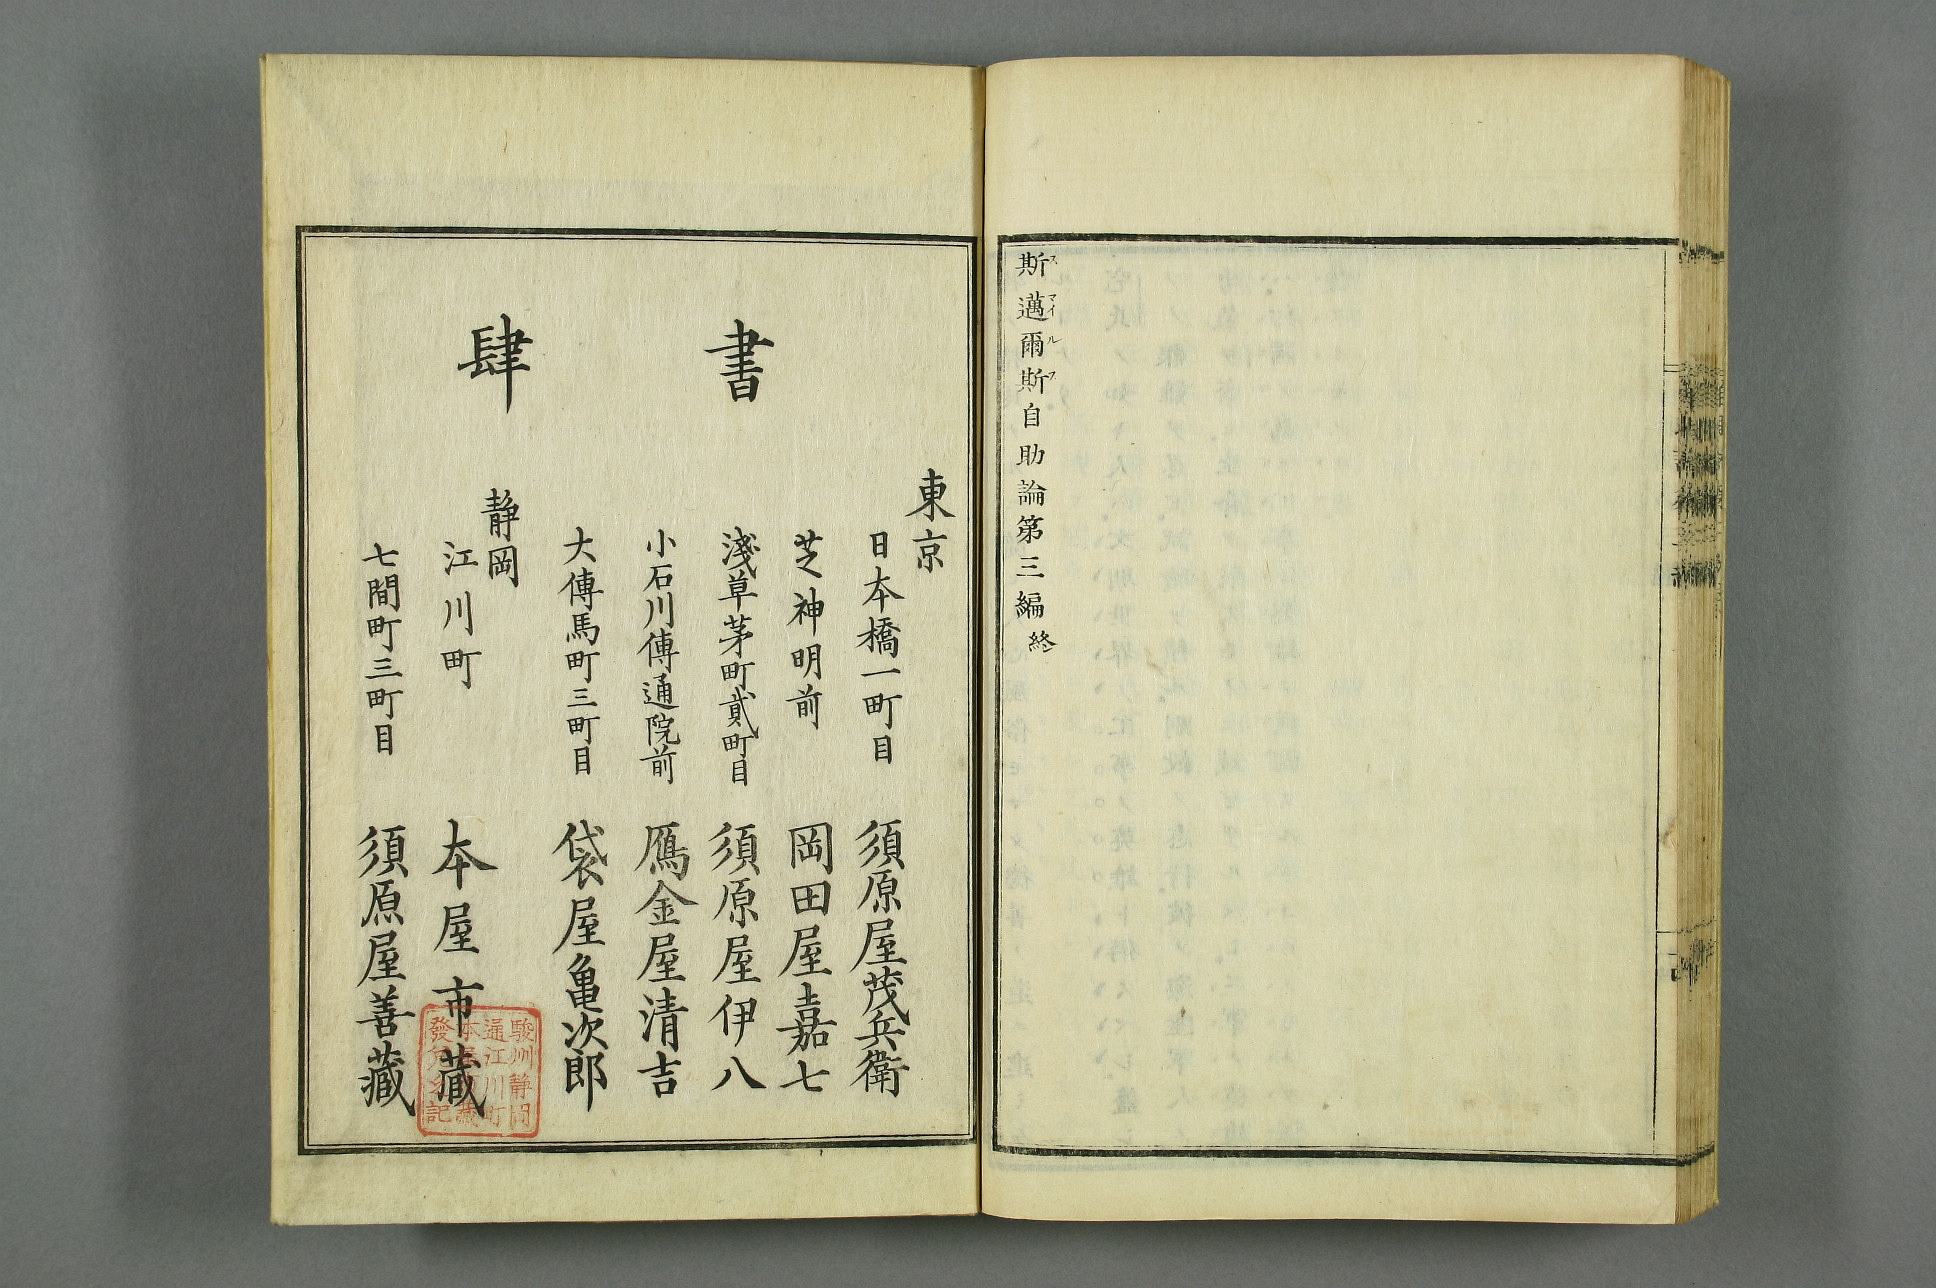 斯邁爾斯自助論第三編終
スマイルス
書肆
東京
日本橋一町目 須原屋茂兵衛
芝神明前 岡田屋嘉七
淺草茅町貳町目 須原屋伊八
小石川傳通院前 鴈金屋清吉
大傳馬町三町目 袋屋亀次郎
静岡
江川町 本屋市蔵
七間町三町目 須原屋善蔵
駿州静岡
通江川町
本屋市蔵
發兌乞記